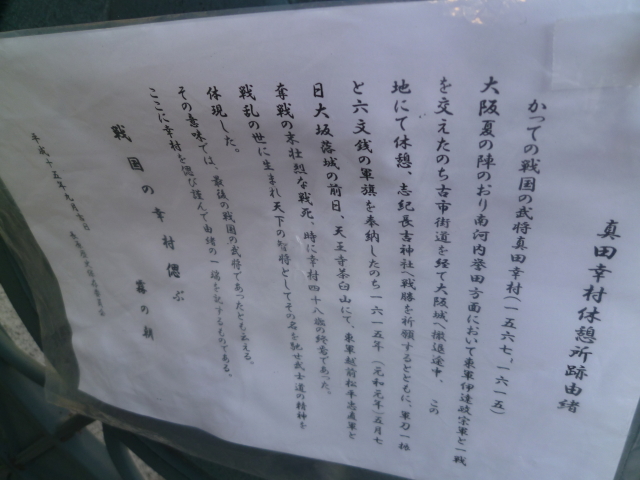 真田幸村休憩所跡由緒
かつての戦国の武将真田幸村(一五六七、一六一五)
大阪夏の陣のおり南河内誉田方面において東軍伊達政宗軍と一戦
を交えたのち古市街道を経て大阪城へ撤退途中、この
地にて休憩、志紀長吉神社へ戦勝を祈願するとともに、軍刀一振
と六文銭の軍旗を奉納したのち一六一五年(元和元年)五月七
日大坂落城の前日、天王寺茶臼山にて、東軍越前松平忠直軍と
奮戦の末壮烈な戦死、時に幸村四十八歳の終意であった。
戦乱の世に生まれ天下の智将としてその名を馳せ武士道の精神を
体現した。
その意味では、最後の戦国の武将であったとも云える。
ここに幸村を偲び謹んで由緒の一端を記するものである。
戦国の幸村偲ぶ
平成十五年九月